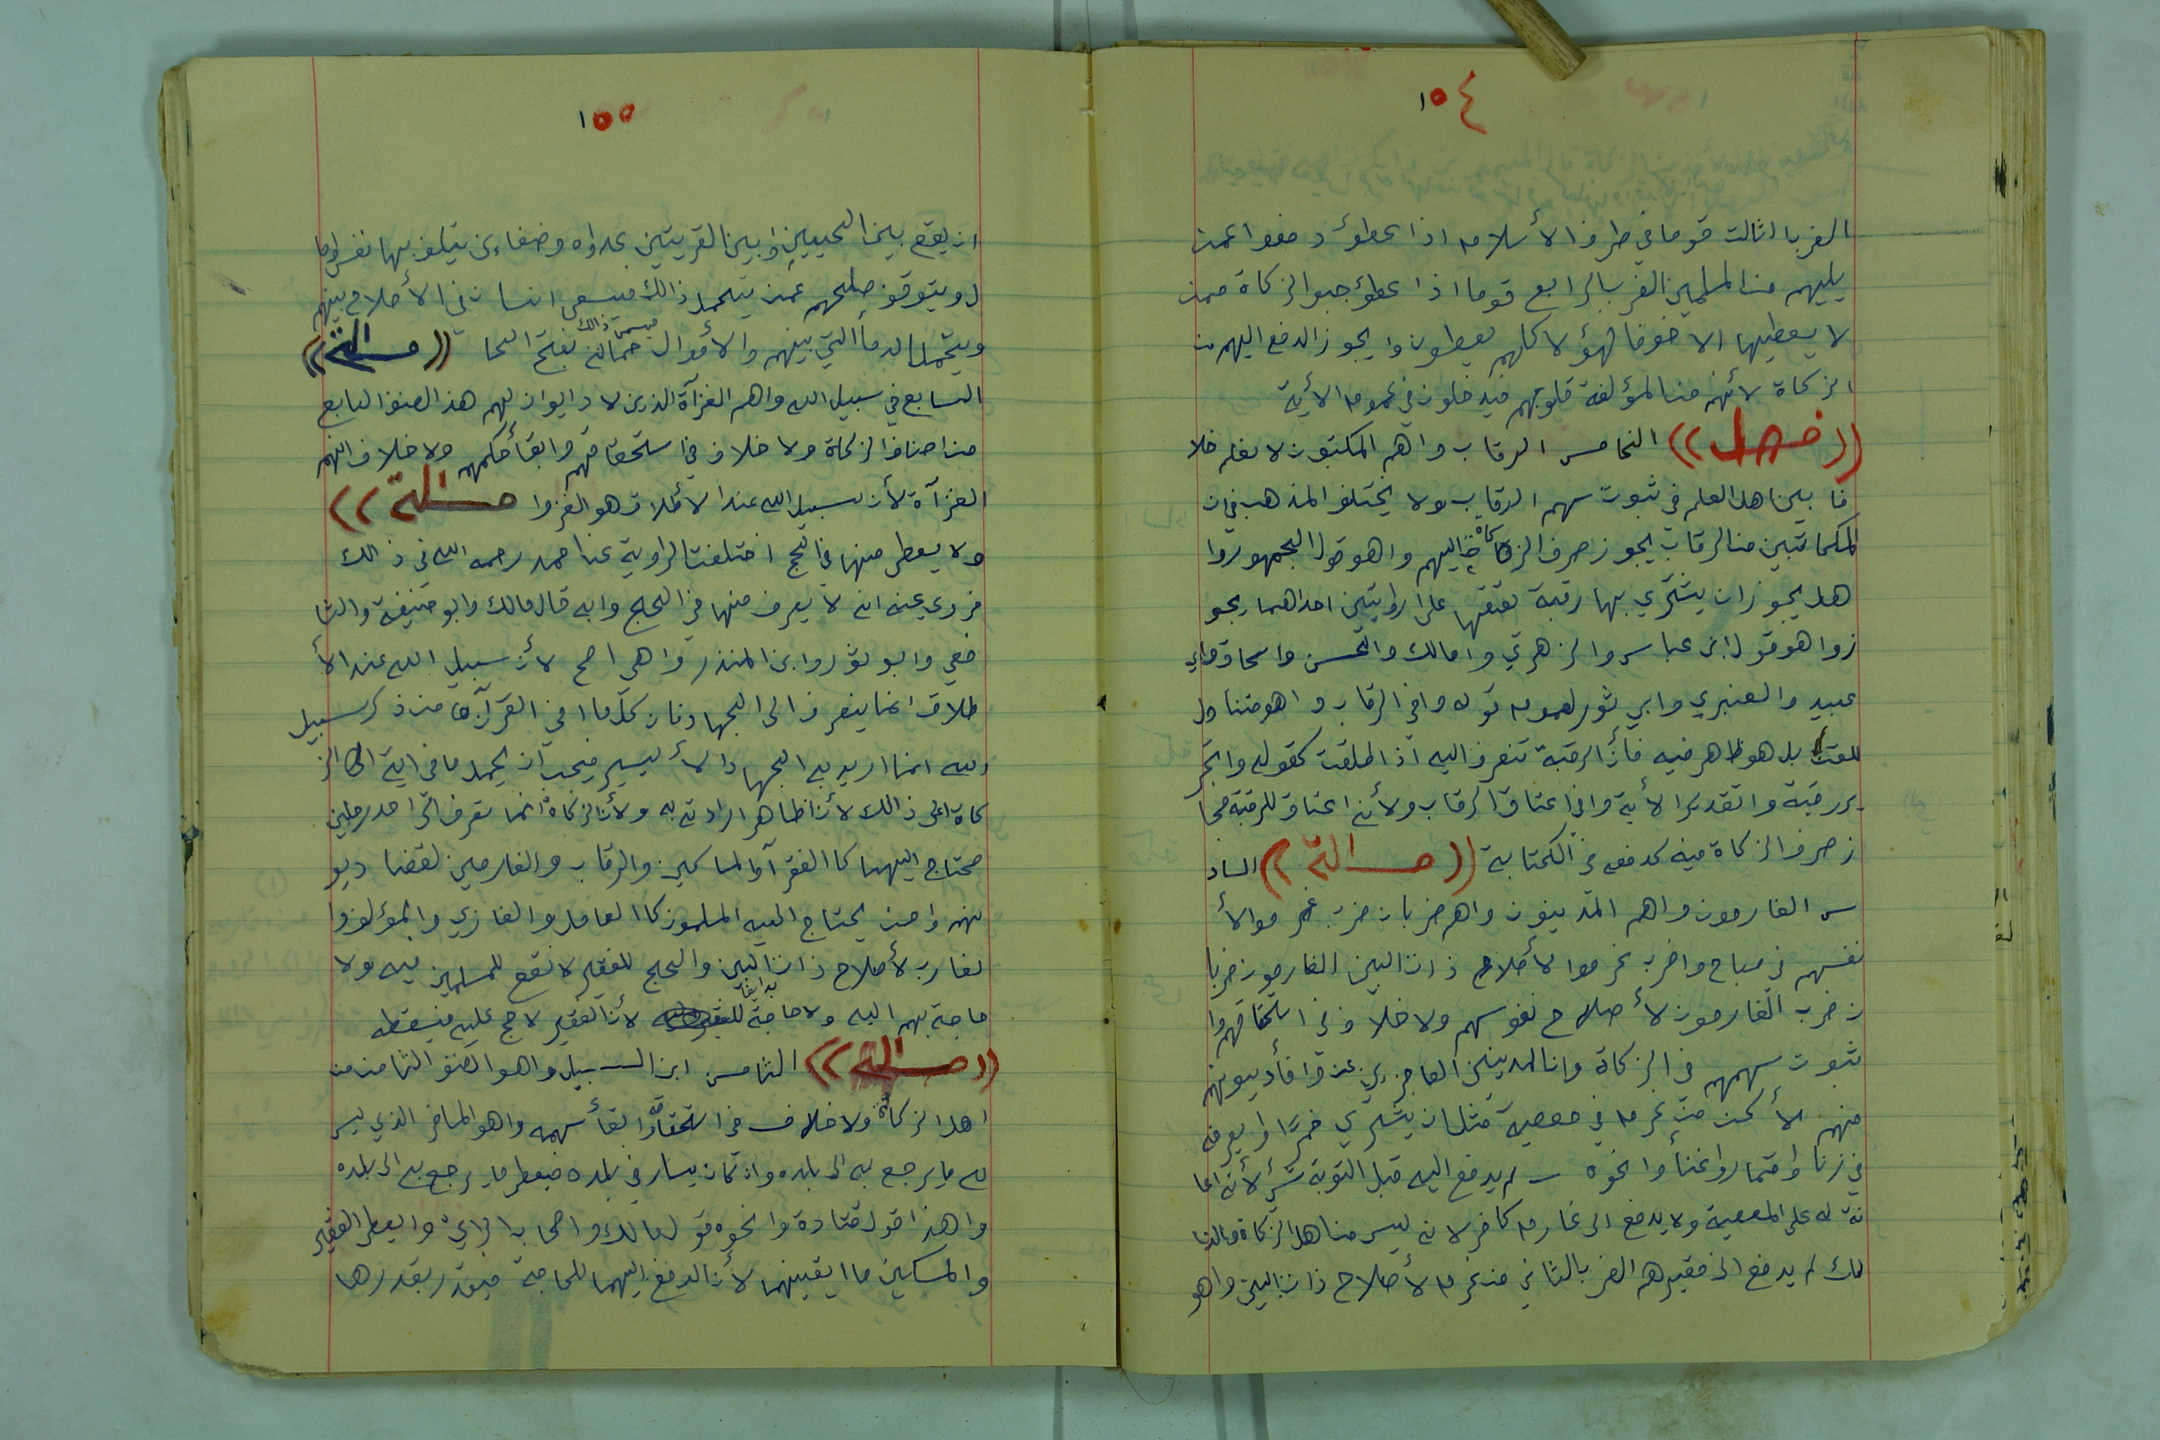 ١٥٤
الضربا الثالث قوما في طرف الأسلام اذا عطوئ دفعوا عمن
يليهم من المسلمين الضر بالرابع قوما اذا عطوئ جبوا الزكاة ممن
لا يعطيها الا خوفا فهؤلا كلهم يعطون وا يجوز الدفع اليهم من
الزكاة لأنهم من المؤلفة قلوبهم فيدخلون في عموم الأية
((فصل)) الخامس الرقاب واهم المكتبون لا نعلم خلا
فا بين اهل العلم في ثبوت سهم الرقاب ولا يختلف المذهب في ان
المكاتبين من الرقاب يجوز صرف الزكاة اليهم واهو قول الجمهور وا
هل يجوز ان يشتري بها رقبة يعتقها على روايتين احداهما يجو
زوا هو قول ابن عباس والزهري وامالك والحسن واسحاق وابي
عبيد والعنبري وابي ثور لعموم قوله وافي الرقاب واهو متناول
للقن بل هو ظاهر فيه فأن الرقبة تنصرف اليه اذا اطلقت كقوله واتحر
ير رقبة واتقدير الأية وافي اعتاق الرقاب ولأنه اعتاق للرقبة فجا
ز صرف الزكاة فيه كدفعه في الكتابة ((مسالة)) الساد
س الغارمون واهم المدينون واهم ضربان ضرب غرموا لأ
نفسهم في مباح واضرب غرموا لأصلاح ذات البين الغارمون ضربا
ن ضرب الغارمون لأصلاح نفوسهم ولا خلاف في استحقاقهم وا
ثبوت سهمهم في الزكاة وان المدينين العاجزين عن وافأ ديونهم
منهم لأكن من غرم في معصية مثل ان يشتري خمرًا او يصرفه
في زنا وا قمار واغنأ وانحوه لم يدفع اليه قبل التوبة شئ لأنه اعا
نة له على المعصية ولا يدفع الى غارم كافر لانه ليس من اهل الزكاة والذا
لك لم يدفع الى فقيرهم الضر بالثاني من غرم لأصلاح ذات البين واهو
١٥٥
ان يقع بين الحيين وابين القريتين عداواه وضغاءن يتلف بها نفس اوما
ل ويتوقف صلحهم عمن يتحمل ذالك فيسعى انسان في الأصلاح بينهم
ويتحمل الدمأ التي بينهم والأموال فيسمى ذالك حمالة بفتح الحا ((مسالة))
السابع في سبيل الله واهم الغزاة الذين لا ديوان لهم هذ الصنف السابع
من اصناف الزكاة ولا خلاف في استحقاقهم وابقأ حكمهم ولا خلاف انهم
الغزآة لأن سبيل الله عند الأطلاق هو الغزوا مسالة))
ولا يعطى منها في الحج اختلفت الراوية عن احمد رحمه الله في ذالك
فروي عنه انه لا يصرف منها في الحج وابه قال مالك وابو حنيفة والشا
فعي وابو ثور وابن المنذر واهي اصح لأن سبيل الله عند الأ
طلاق انما ينصرف الى الجهاد فان كل ما في القرآن من ذكر سبيل
الله انما اريد به الجهاد الأ ليسير فيجب ان يحمل ما في اية الز
كاة اعلى ذالك لأن الظاهر ارادته به ولأن الزكاة انما تصرف الى احد رجلين
محتاج اليهما كا الفقرآ والمساكين والرقاب والغارمين لقضا ديو
نهم وا من يحتاج اليه المسلمون كا العامل والغازي والمؤلف وا
لغارب لأصلاح ذات البين والحج للفقير لا نفع للمسلمين فيه ولا
حاجة بهم اليه ولا حاجة للفقير به ايضا لأن الفقير لا حج عليه فيسقطه
((مسالة)) الثامن ابن السبيل واهو الصنف الثامن من
اهل الزكاة ولا خلاف في استحقاقه وابقأ سهمه واهو المسافر الذي ليس
له ما يرجع به الى بلده وان كان يسار في بلده فيعطى ما يرجع به الى بلده
واهذا قول قتادة وانحوه قول مالك واصحاب الرايء وايعطى الفقير
والمسكين ما يغنيهما لأن الدفع اليهما للحاجة فيقدر بقدرها